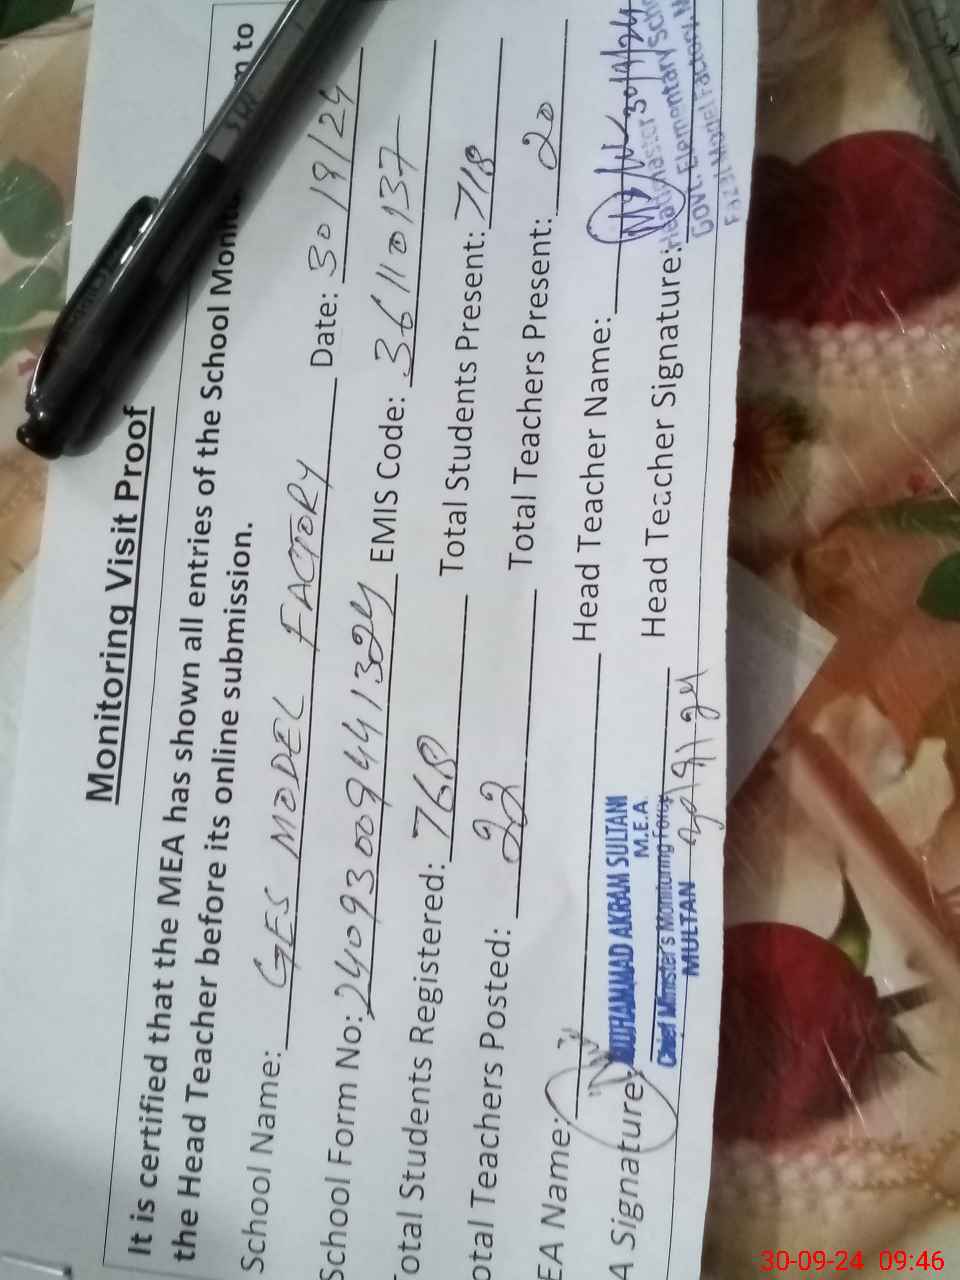 Monitoring Visit Proof
It is certified that the MEA has shown all entries of the School Monit m to
the Head Teacher before its online submission.
School Name: GES MODEL FACTORY Date: 30/9/24
School Form No: 24093009441324 EMIS Code: 36110137
Total Students Registered: 768 Total Students Present: 718
otal Teachers Posted: 22 Total Teachers Present: 20
EA Name: Head Teacher Name:
A Signature: Head Teacher Signature:
MUHAMMAD AKRAM SULTANI
M.E.A
Chief Minister's Monitoring Force
MULTAN
30/9/24
30/9/24
Headmaster
Govt. Elementary Sch
Fazal Model Factory, M
30-09-24 09:46